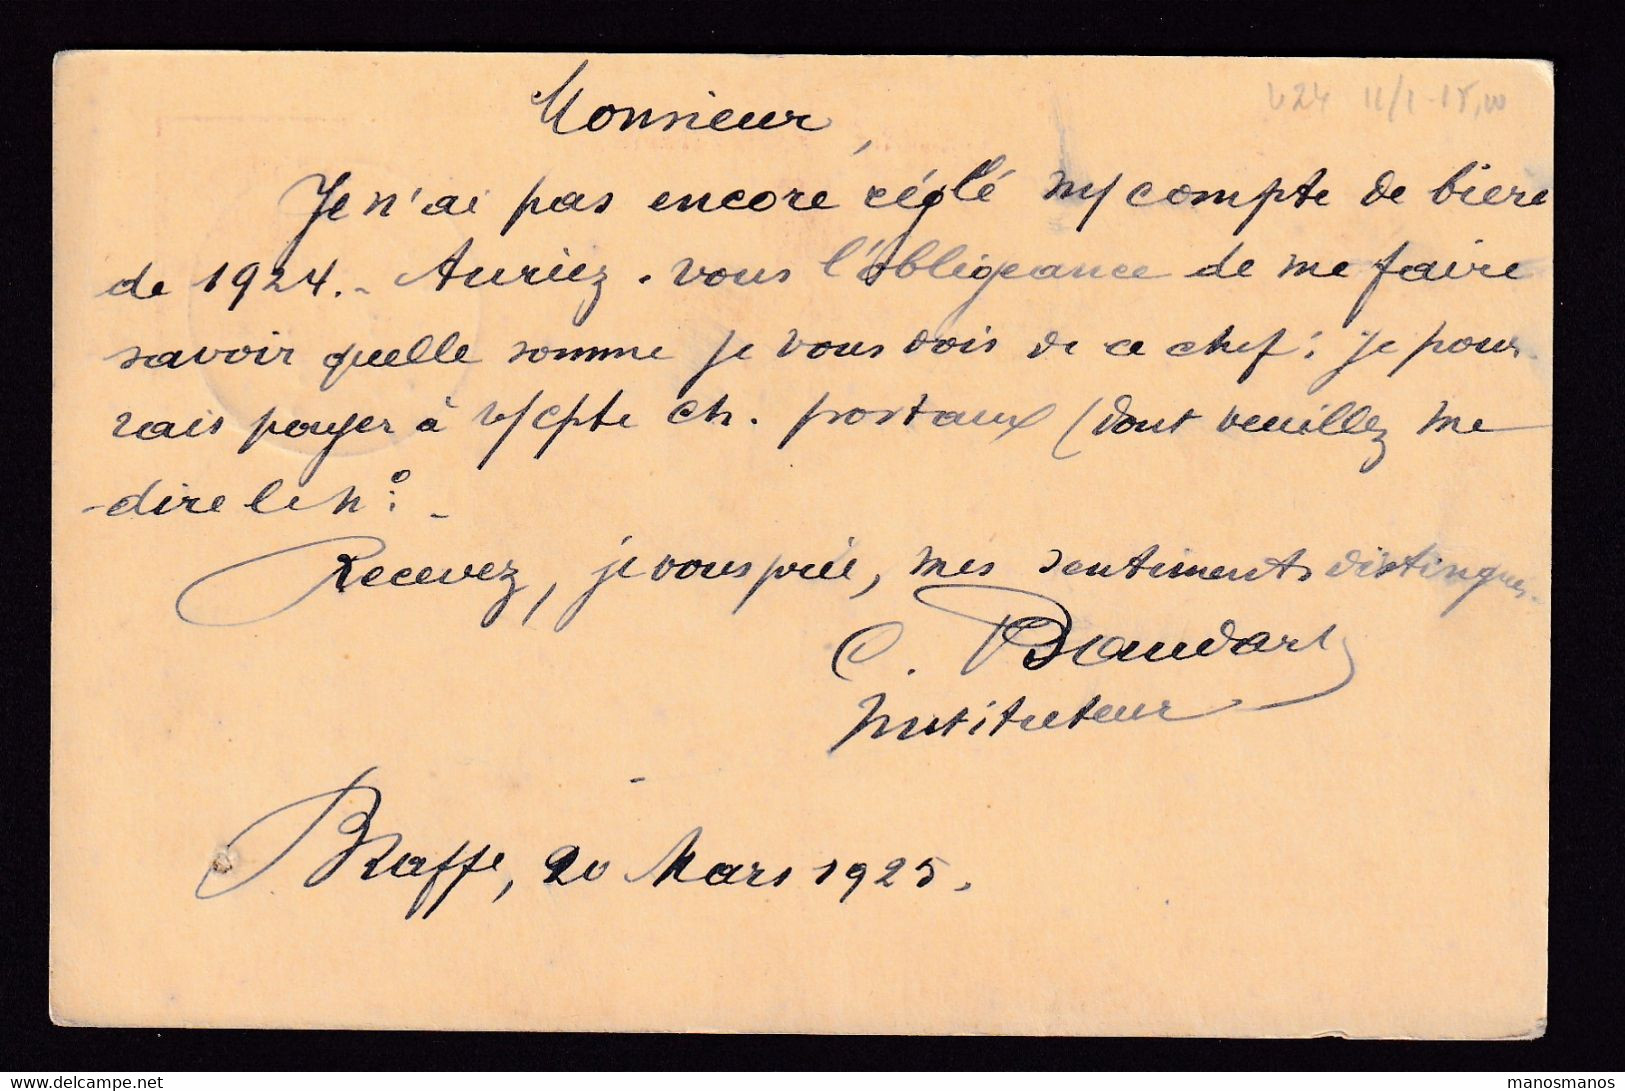 u24 11/1-15,00
Monsieur,
Je n'ai pas encore réglé m/ compte de bière
de 1924.- Auriez-vous l'obligeance de me faire
savoir quelle somme je vous dois de ce chef; je pour-
rais payer à v/ cpte ch. postaux (dont veuillez me
dire le n°.-
Recevez, je vous prie, mes sentiments distingués.
C. Baudart
Instituteur
Braffe, 20 Mars 1925.
manosmanos